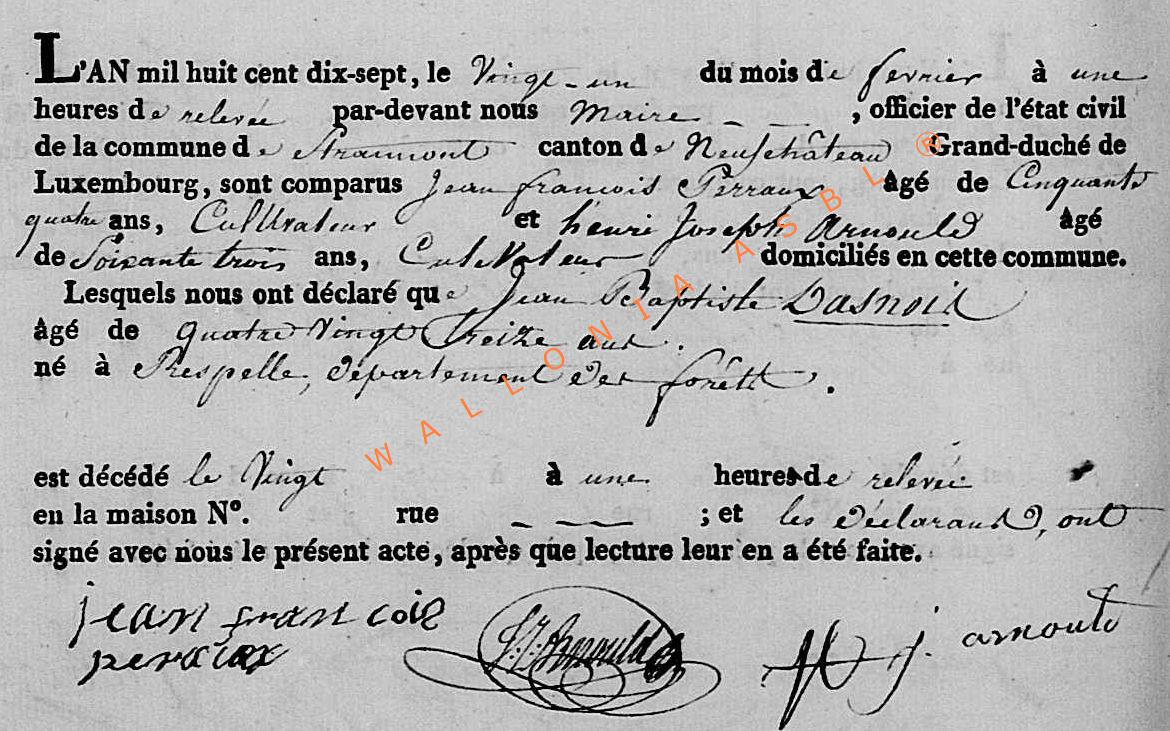 L'AN mil huit cent dix-sept, le Vingt-un du mois de fevrier à une
heures de relevée par-devant nous Maire _ _ , officier de l'état civil
de la commune de Straimont canton de Neufchâteau Grand-duché de
Luxembourg, sont comparus Jean francois Perraux âgé de Cinquante
quatre ans, Cultivateur et henri Joseph Arnould âgé
de Soixante trois ans, Cultivateur domiciliés en cette commune.
Lesquels nous ont déclaré que Jean Baptiste Dasnois
âgé de quatre Vingt Treize ans.
né à Respelle, département des forêts.
est décédé le Vingt à une heures de relevée
en la maison N°. rue _ _ _ ; et les déclarants, ont
signé avec nous le présent acte, après que lecture leur en a été faite.
jean francois
peraux
Arnould
H j. arnould
WALLONIA ASBL ®